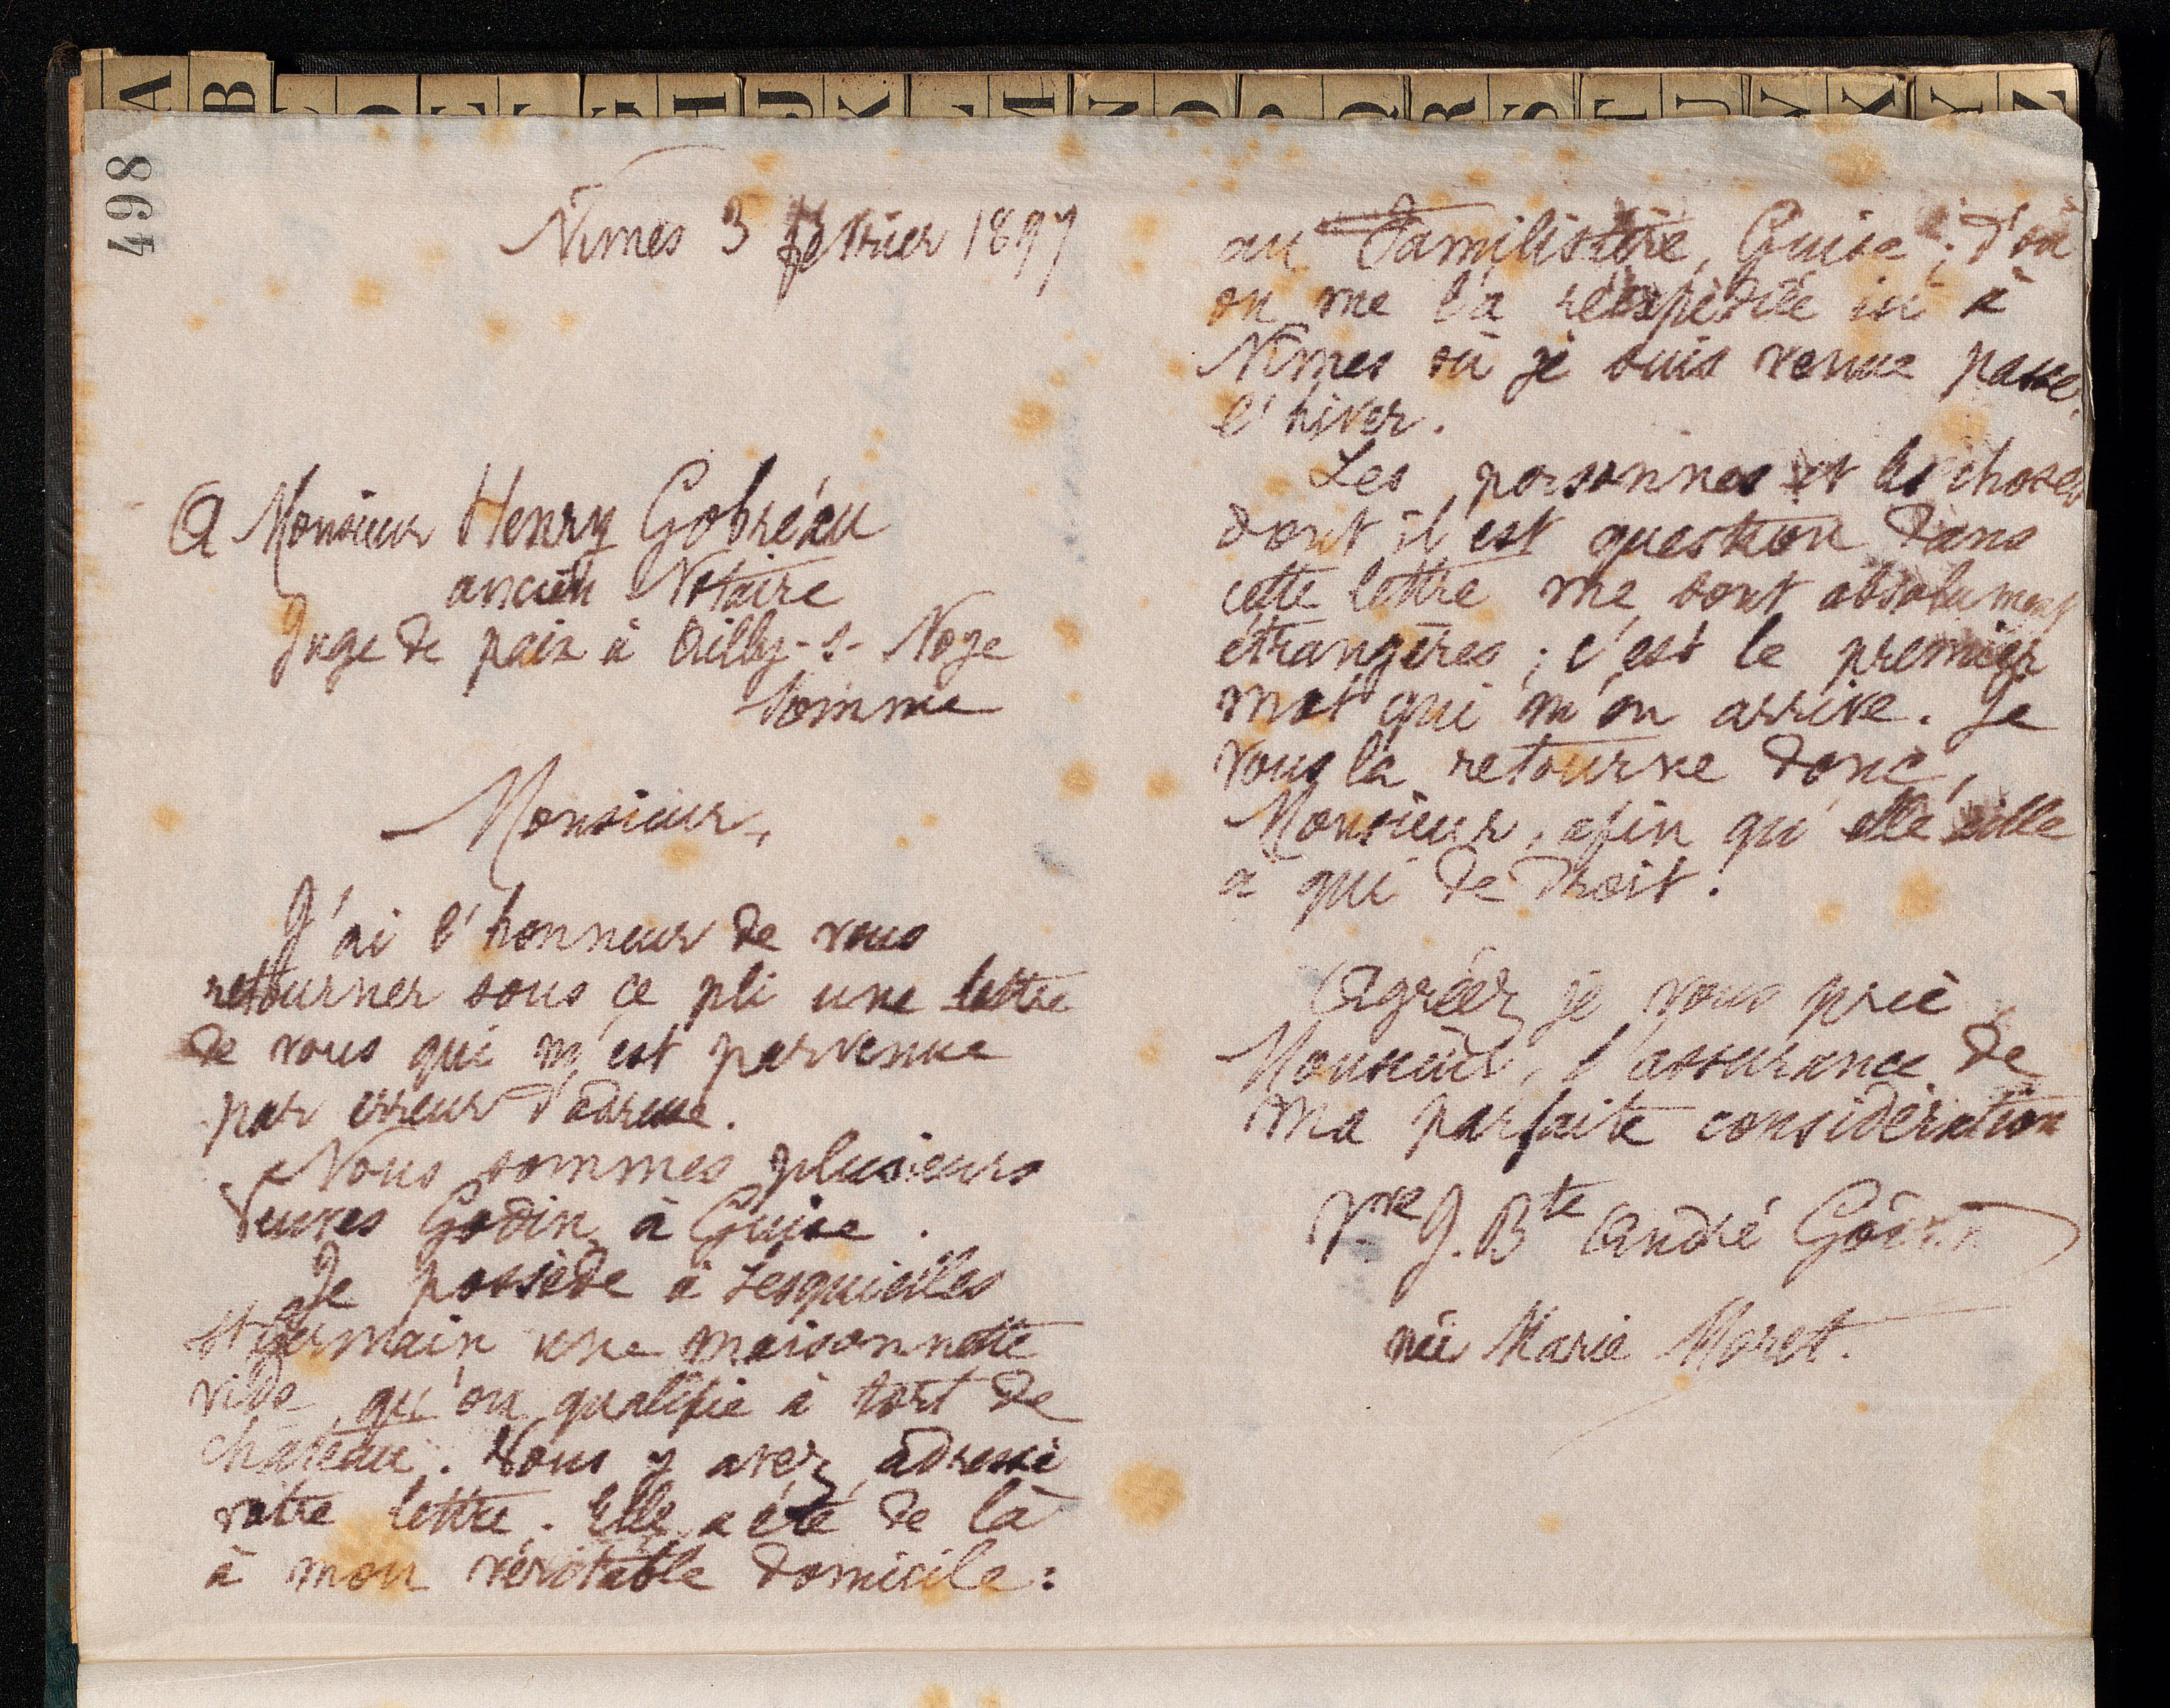 A B J K N R S T U V X Y Z
498
Nîmes 3 février 1897
A Monsieur Henry Gobréau
ancien Notaire
Juge de paix à Ailly-s-Noye
Somme
Monsieur,
J'ai l'honneur de vous
retourner sous ce pli une lettre
de vous qui m'est parvenue
par erreur d'adresse.
Nous sommes plusieurs
veuves Godin à Guise.
Je possède à Lesquielles
St Germain une maisonnette
vide, qu'on qualifie à tort de
château. Vous y avez adressé
votre lettre. Elle a été de là
à mon véritable domicile:
au Familistère, Guise; d'où
on me l'a réexpédiée ici à
Nîmes où je suis venue passer
l'hiver.
Les personnes et les choses
dont il est question dans
cette lettre me sont absolument
étrangères; c'est le premier
mot qui m'en arrive. Je
vous la retourne donc,
Monsieur, afin qu'elle aille
à qui de droit.
Agréez je vous prie,
Monsieur, l'assurance de
ma parfaite considération
Vve J. Bte André Godin
née Marie Moret.